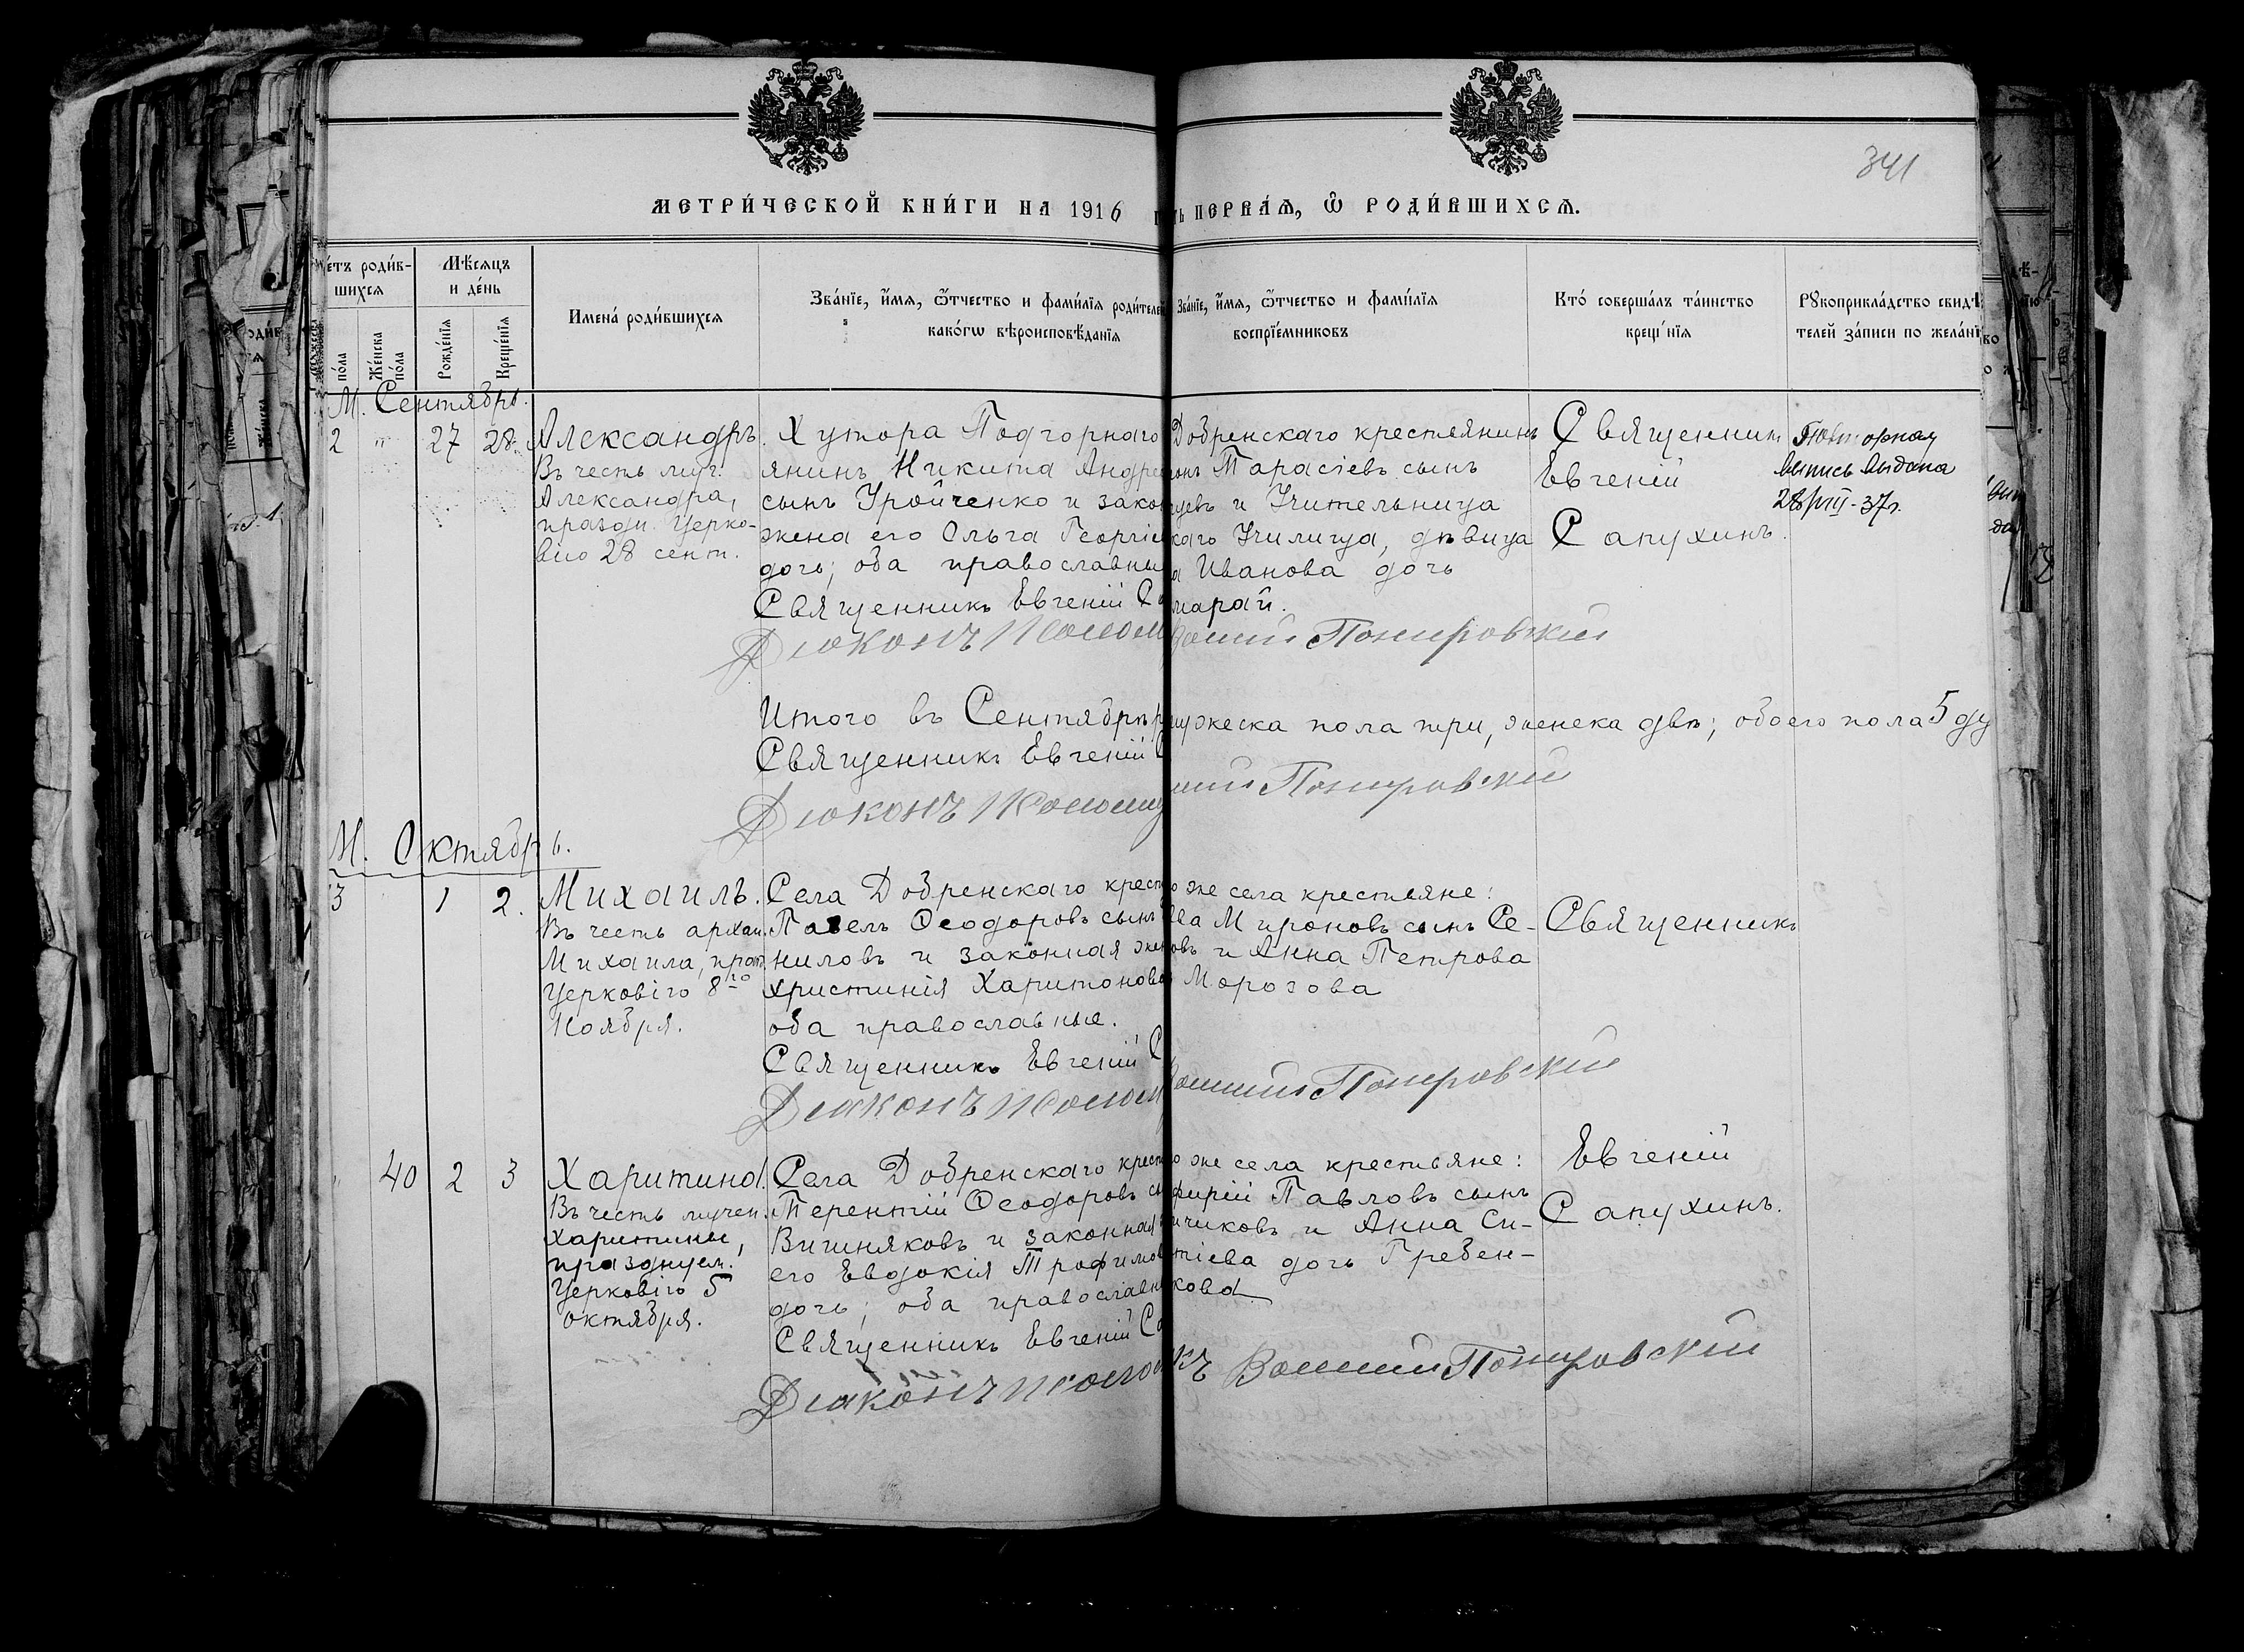 341
МЕТРИ́ЧЕСКОЙ КНИ́ГИ НА 1916
ПЕРВА́Ѧ, Ѽ РОДИ́ВШИХСѦ.
е́тъ роди́в-
шихсѧ
Мѣ́сяцъ
и де́нь
по́ла
Же́нска
по́ла
Рожде́нїѧ
Креще́нїѧ
Имена́ роди́вшихсѧ
Зва́нїе, и́мѧ, ѻ҆́тчество и фами́лїѧ роди́телей
како́гѡ вѣроисповѣ́данїѧ
Зва́нїе, и́мѧ, ѻ҆́тчество и фами́лїѧ
воспрїе́мниковъ
Кто́ соверша́лъ та́инство
креще́нїѧ
Рꙋкоприкла́дство свидѣ́
телей за́писи по жела́нї
М. Сентябрь.
2 " 27 28. Александръ.
Въ честь муч.
Александра,
праздн. Церко-
вію 28 сент.
Хутора Подгорнаго
янинъ Никита Андре
сынъ Уройченко и закон
жена его Ольга Георгіе
дочь; оба православны
Священникъ Евгеній Са
Діаконъ
Добренскаго крестьянинъ
онъ Тарасіевъ сынъ
цевъ и Учительница
каго Училища, дѣвица
а Иванова дочь
марай.
Покровскій
Священник
Евгеній
Сапухинъ.
Повторная
выпись выдана
28/VIII-37г.
Итого въ Сентябрѣ
мужеска пола три, женска двѣ; обоего пола 5 ду
Священникъ Евгеній С
Діаконъ
Покровскій
М. Октябрь.
3 1 2. Михаилъ.
Въ честь архан.
Михаила, праз.
Церковію 8го
Ноября.
Села Добренскаго крест
Павелъ Ѳеодоровъ сынъ
ниловъ и законная жен
Христинія Харитонова
оба православные.
Священникъ Евгеній С
Діаконъ
о же села крестьяне:
ва Мироновъ сынъ Се-
овъ и Анна Петрова
Морозова
Покровскій
Священникъ
" 40 2 3 Харитина.
Въ честь мучен.
Харитины,
празднуем.
Церковію 5
октября.
Села Добренскаго крест
Терентій Ѳеодоровъ сы
Вишняковъ и законная
его Евдокія Трофимов
дочь; оба православн
Священникъ Евгеній Са
Діаконъ
о же села крестьяне:
фирій Павловъ сынъ
ичиковъ и Анна Си-
тіева дочь Гребен-
кова
Покровскій
Евгеній
Сапухинъ.